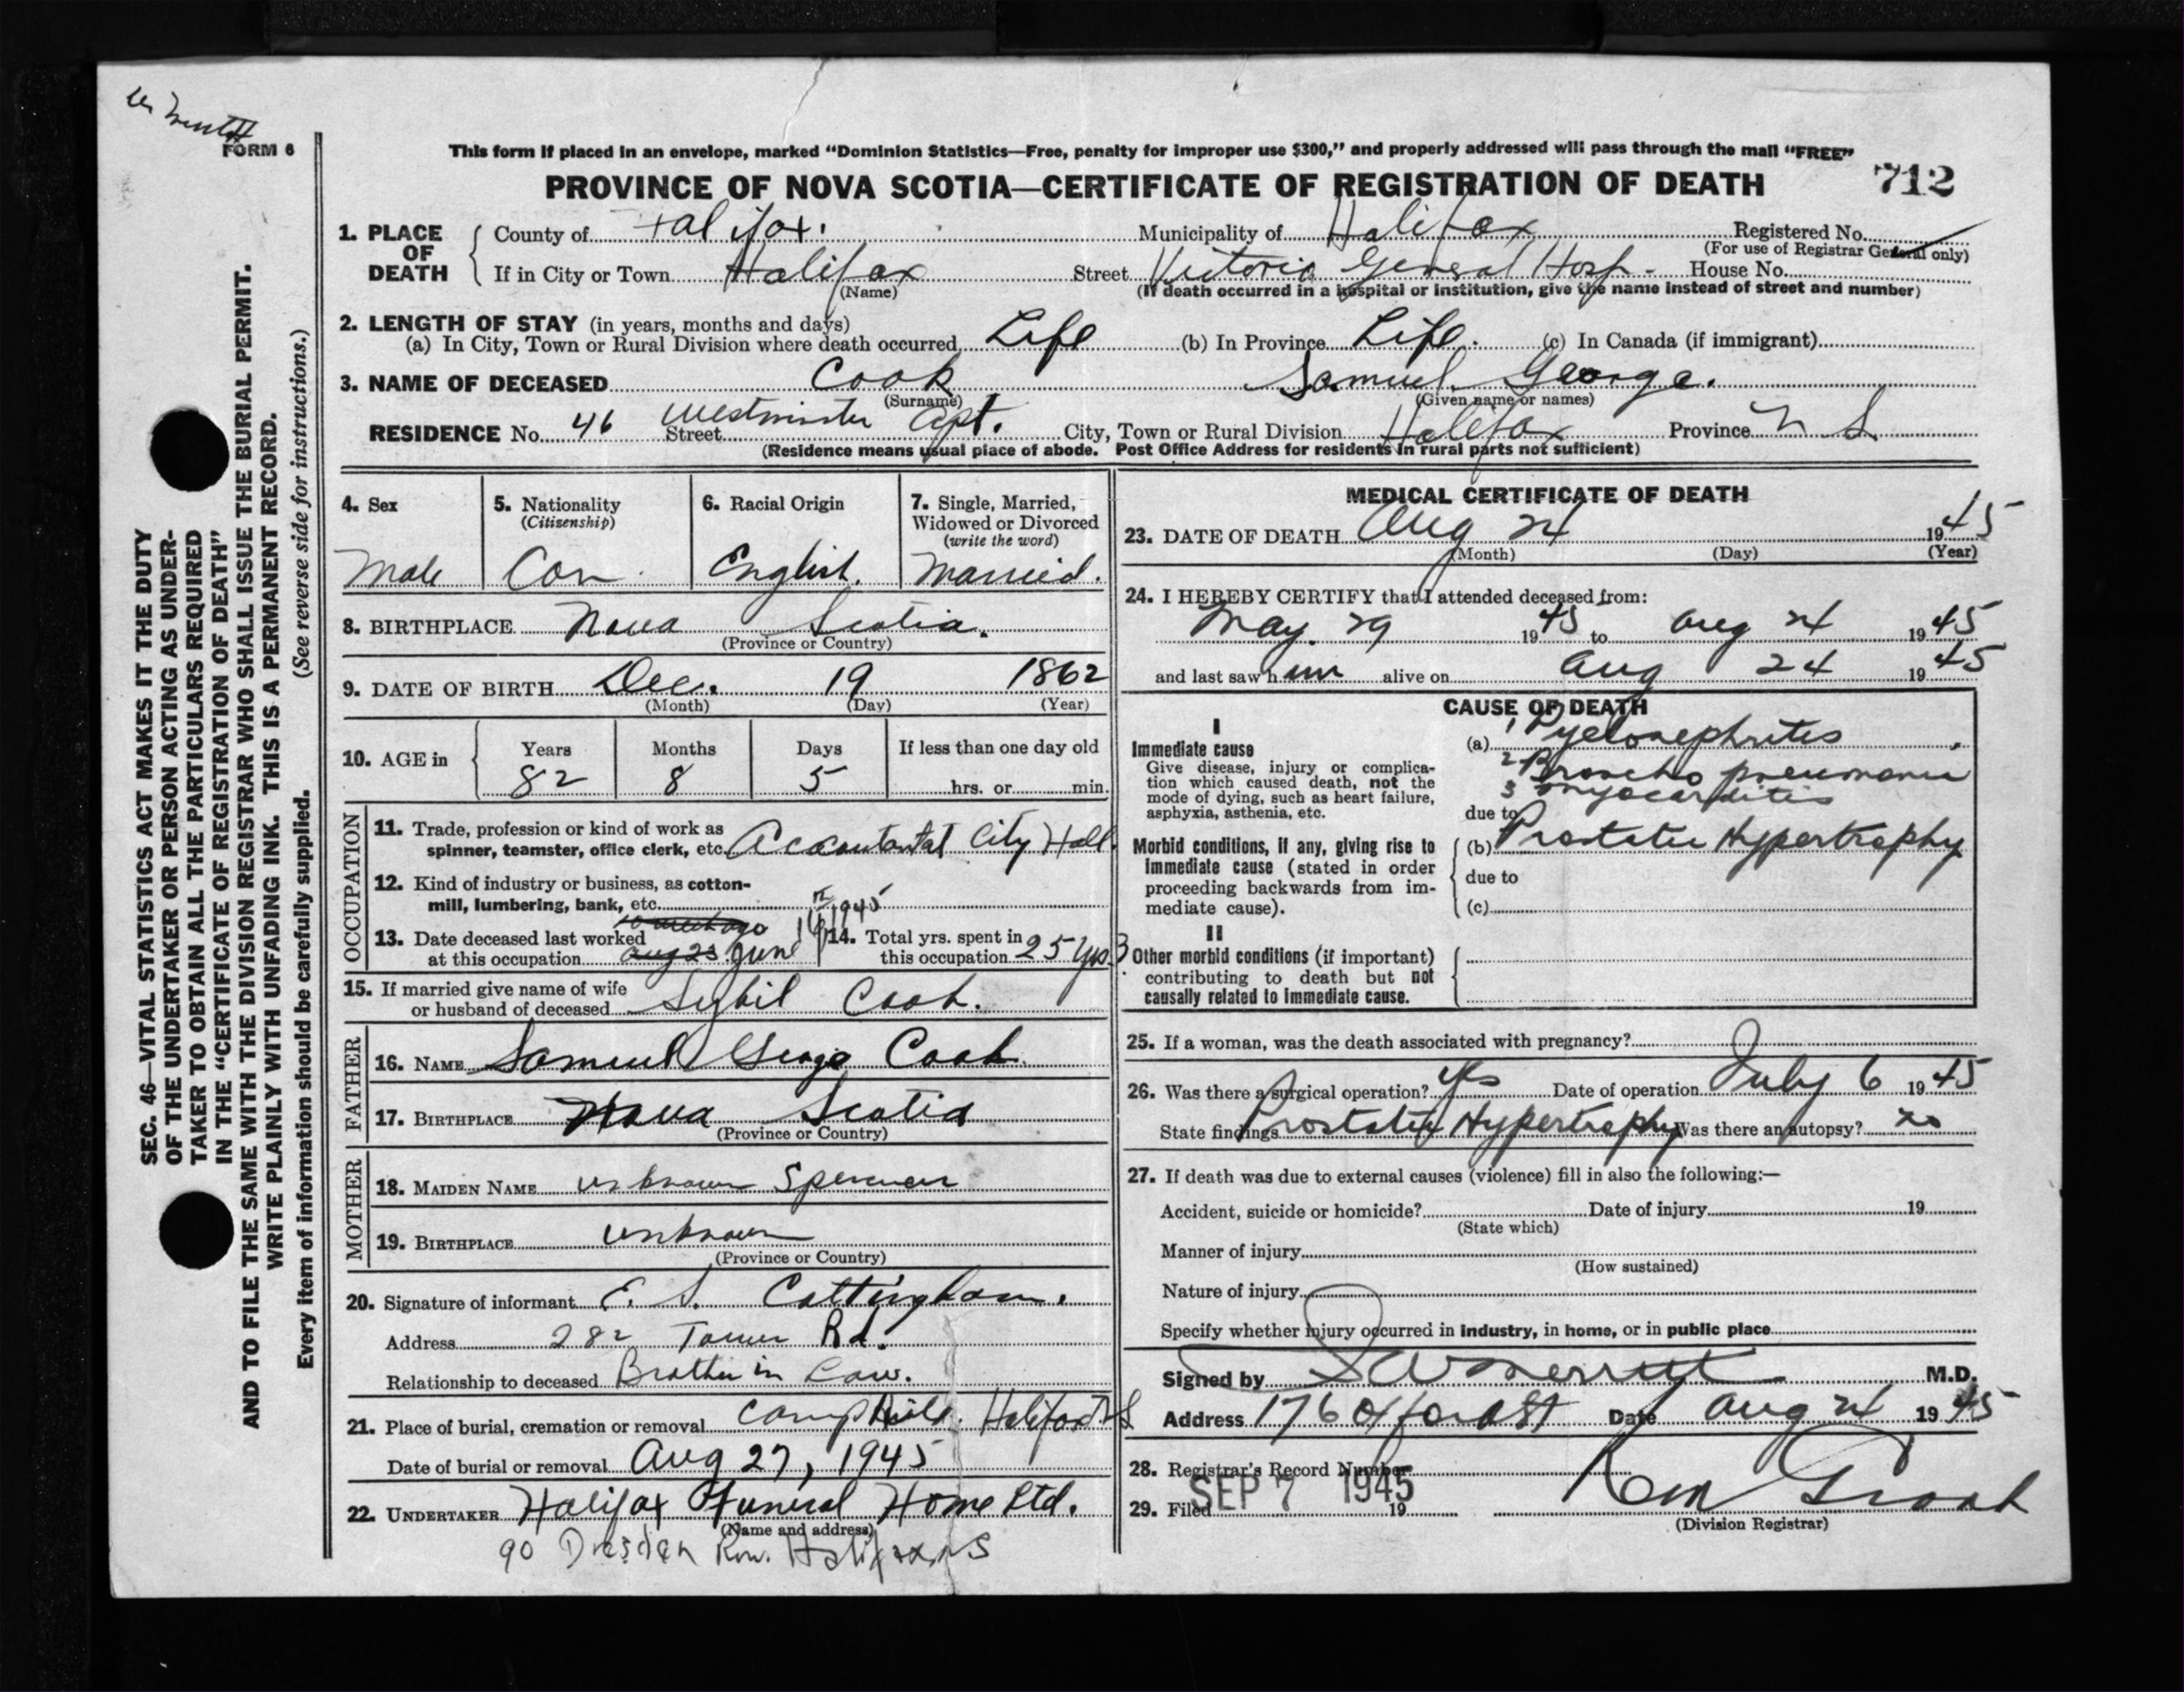 FORM 6
This form if placed in an envelope, marked "Dominion Statistics—Free, penalty for improper use $300," and properly addressed will pass through the mail "FREE"
PROVINCE OF NOVA SCOTIA—CERTIFICATE OF REGISTRATION OF DEATH 712
1. PLACE OF DEATH County of Halifax. Municipality of Halifax Registered No.
(For use of Registrar General only)
If in City or Town Halifax Street Victoria General Hosp. House No.
(Name) (If death occurred in a hospital or institution, give the name instead of street and number)
2. LENGTH OF STAY (in years, months and days)
(a) In City, Town or Rural Division where death occurred Life (b) In Province Life. (c) In Canada (if immigrant)
3. NAME OF DECEASED Cook Samuel George.
(Surname) (Given name or names)
RESIDENCE No. 46 Street Westminster Apt. City, Town or Rural Division Halifax Province N S
(Residence means usual place of abode. Post Office Address for residents in rural parts not sufficient)
4. Sex
Male
5. Nationality
(Citizenship)
Can
6. Racial Origin
English.
7. Single, Married,
Widowed or Divorced
(write the word)
Married.
8. BIRTHPLACE Nova Scotia.
(Province or Country)
9. DATE OF BIRTH Dec. 19 1862
(Month) (Day) (Year)
10. AGE in Years Months Days If less than one day old
82 8 5 hrs. or min.
OCCUPATION
11. Trade, profession or kind of work as
spinner, teamster, office clerk, etc. Accountantat City Hall.
12. Kind of industry or business, as cotton-
mill, lumbering, bank, etc.
13. Date deceased last worked
at this occupation Aug 23 June 1945
14. Total yrs. spent in
this occupation 25 yrs.
15. If married give name of wife
or husband of deceased Sybil Cook.
FATHER
16. NAME Samuel George Cook
17. BIRTHPLACE Nova Scotia
(Province or Country)
MOTHER
18. MAIDEN NAME unknown Spencer
19. BIRTHPLACE unknown
(Province or Country)
20. Signature of informant E. S. Cottingham.
Address 282 Tower Rd.
Relationship to deceased Brother in Law.
21. Place of burial, cremation or removal Camp Hill. Halifax N S
Date of burial or removal Aug 27, 1945
22. UNDERTAKER Halifax Funeral Home Ltd.
(Name and address)
90 Dresden Row. Halifax, N S
MEDICAL CERTIFICATE OF DEATH
23. DATE OF DEATH Aug 24 1945
(Month) (Day) (Year)
24. I HEREBY CERTIFY that I attended deceased from:
May. 29 1945 to Aug 24 1945
and last saw him alive on Aug 24 1945
CAUSE OF DEATH
I
Immediate cause
Give disease, injury or complica-
tion which caused death, not the
mode of dying, such as heart failure,
asphyxia, asthenia, etc.
(a) 1 Pyelonephritis
2 Broncho pneumonia
3 myocarditis
due to
Morbid conditions, if any, giving rise to
immediate cause (stated in order
proceeding backwards from im-
mediate cause).
(b) Prostatic Hypertrophy
due to
(c)
II
Other morbid conditions (if important)
contributing to death but not
causally related to immediate cause.
25. If a woman, was the death associated with pregnancy?
26. Was there a surgical operation? Yes Date of operation July 6 1945
State findings Prostatic Hypertrophy Was there an autopsy? no
27. If death was due to external causes (violence) fill in also the following:—
Accident, suicide or homicide? Date of injury 19
(State which)
Manner of injury
(How sustained)
Nature of injury
Specify whether injury occurred in industry, in home, or in public place
Signed by M.D.
Address 176 Oxford St Date Aug 24 1945
28. Registrar's Record Number
29. Filed SEP 7 1945 19
(Division Registrar)
SEC. 46—VITAL STATISTICS ACT MAKES IT THE DUTY
OF THE UNDERTAKER OR PERSON ACTING AS UNDER-
TAKER TO OBTAIN ALL THE PARTICULARS REQUIRED
IN THE "CERTIFICATE OF REGISTRATION OF DEATH"
AND TO FILE THE SAME WITH THE DIVISION REGISTRAR WHO SHALL ISSUE THE BURIAL PERMIT.
WRITE PLAINLY WITH UNFADING INK. THIS IS A PERMANENT RECORD.
Every item of information should be carefully supplied. (See reverse side for instructions.)